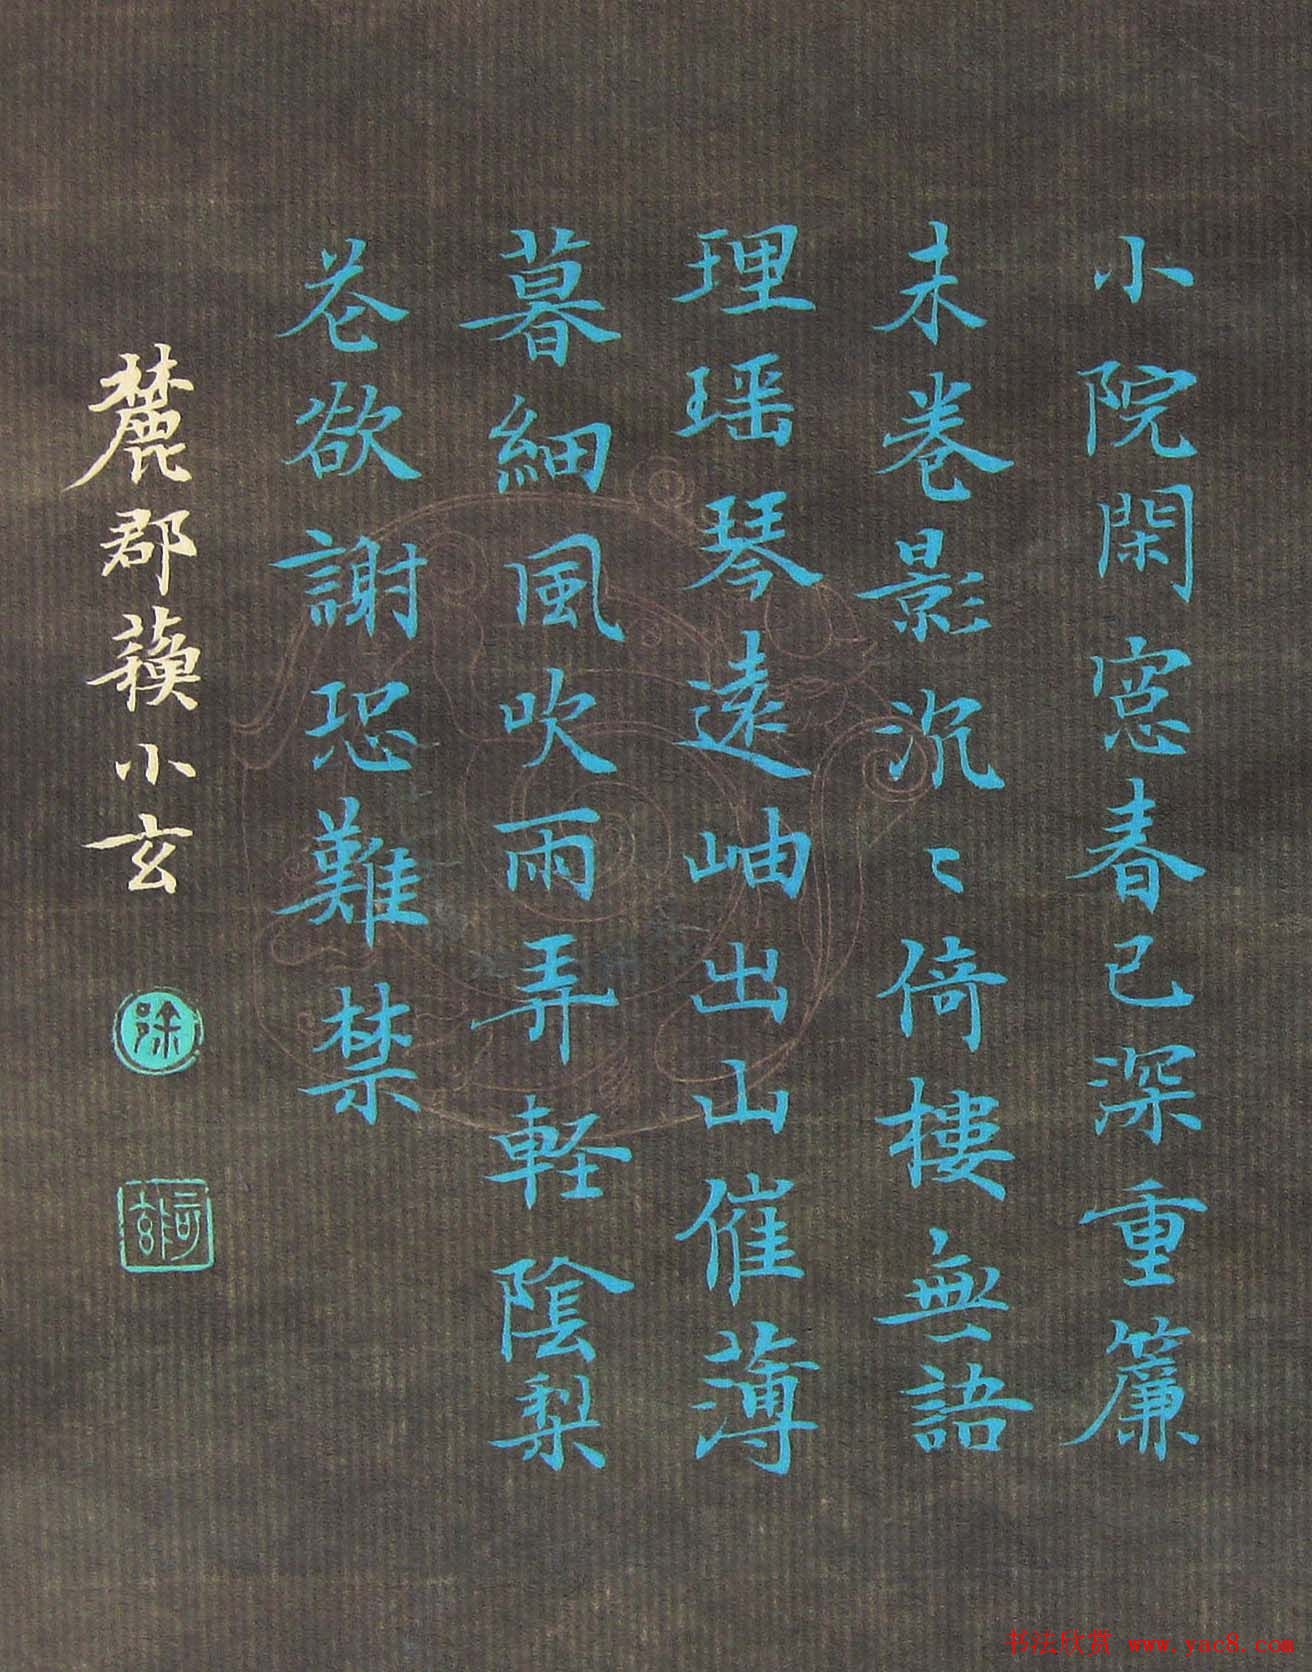 小院閑窓春已深重簾
未卷影沉〻倚樓無語
理瑶琴遠岫出山催薄
暮細風吹雨弄軽陰梨
花欲謝恐難禁
小玄
徐
书法欣赏 www.yac8.com